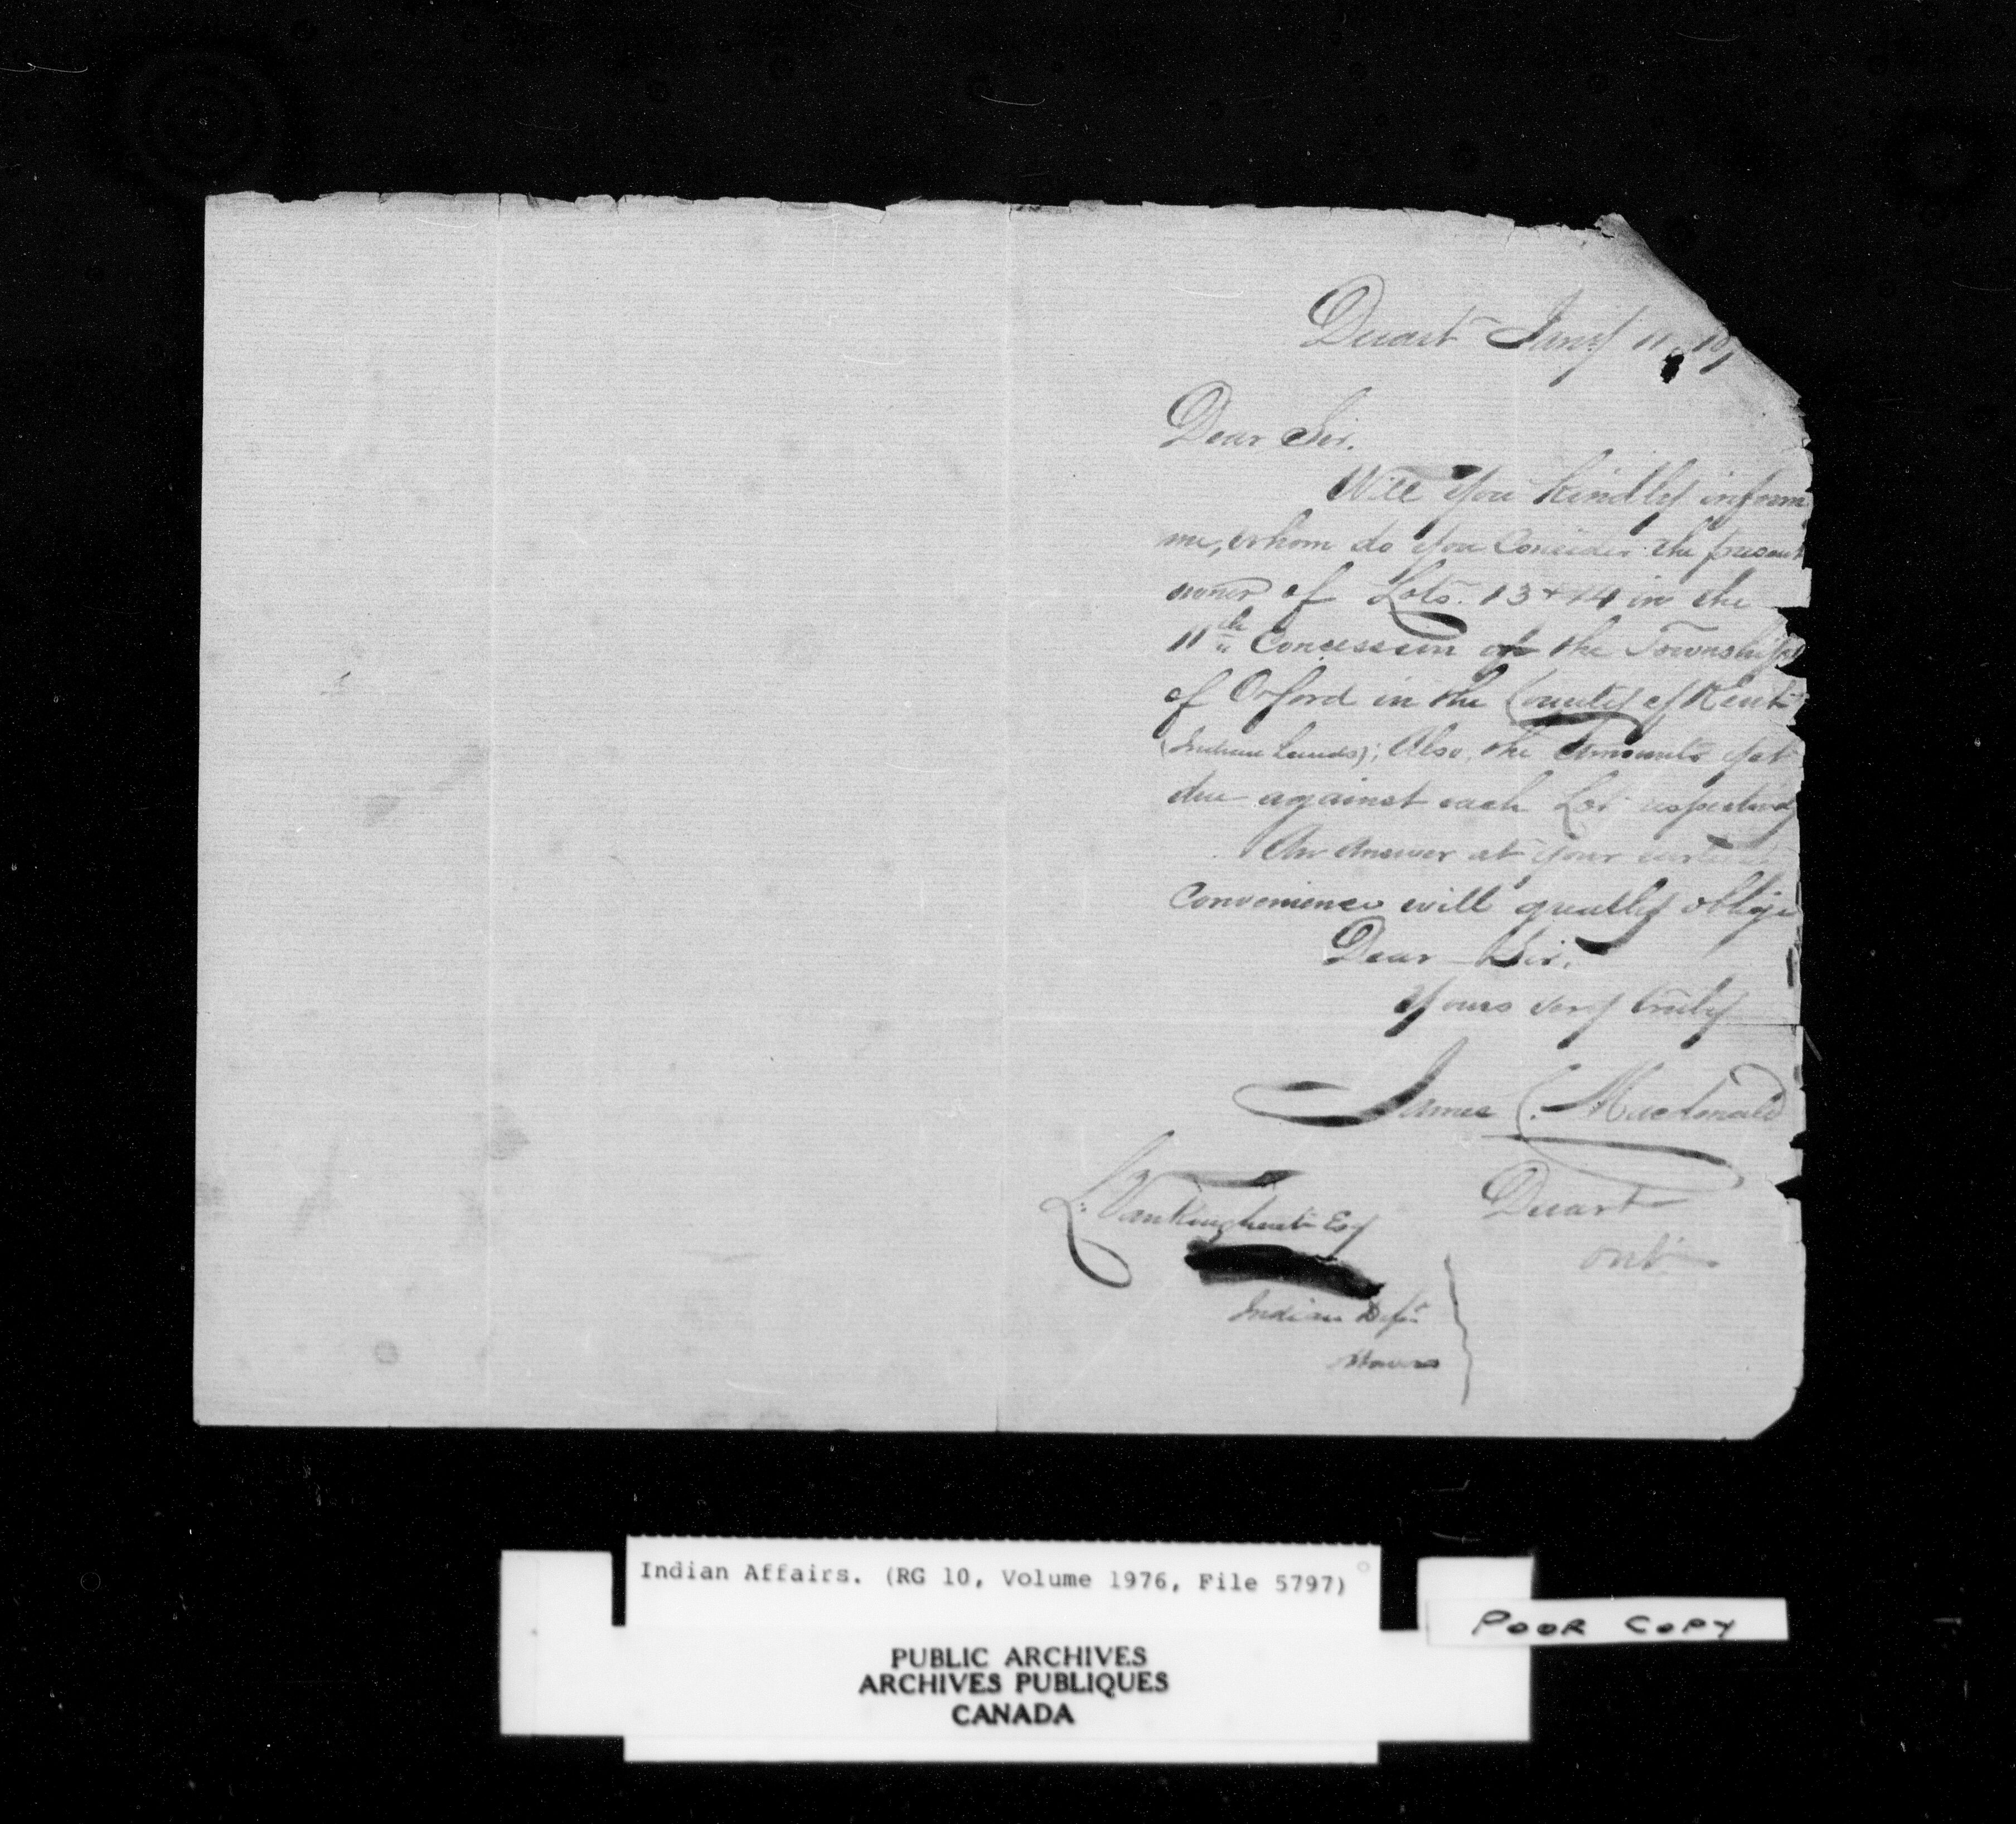 Duart Jany 11
Dear Sir.
Will you Kindly inform
me, whom do you Consider the present
owner of Lots. 13 + 14 in the
11th Concession of the Township
of Orford in the County of Kent
(Indian Lands); Also, the Amounts yet
due against each Lot respectively
An Answer at your earliest
Convenience will greatly oblige
Dear Sir,
Yours very truly
James C. Macdonald
Duart
Ont.
L. VanKoughnet Esq
Indian Dept
Ottawa
Indian Affairs. (RG 10, Volume 1976, File 5797)
POOR COPY
PUBLIC ARCHIVES
ARCHIVES PUBLIQUES
CANADA